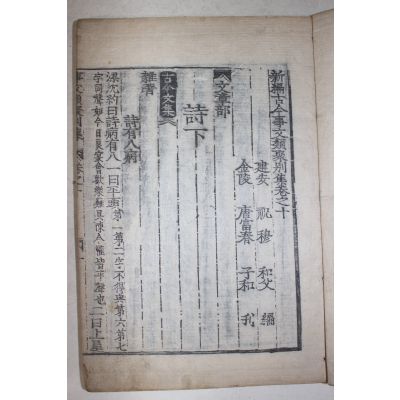 新編古今事文類聚別集卷之十
建安 祝穆 和父 編
金陵 唐富春 子和 刋
文章部
詩下
古今文集
雜著
詩有八病
梁沈約曰詩病有八一曰平頭第一第二字不得與第六第七
字同聲如今日良宴會歡樂難具陳今歡皆平聲也二曰上尾